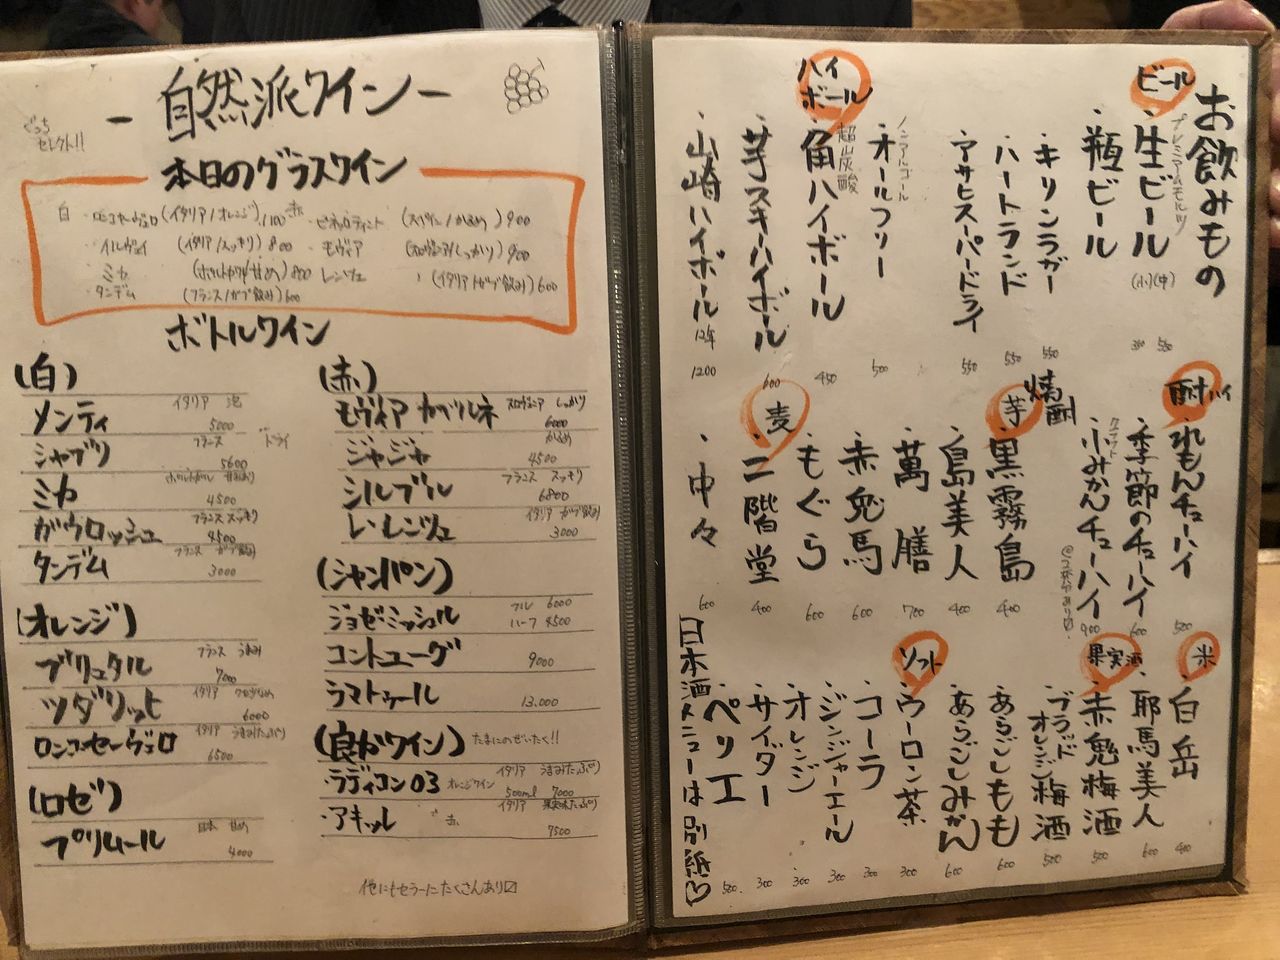 自然派ワイン
ぐっち
セレクト!!
本日のグラスワイン
白 ・ロンコセーヴェロ(イタリア/オレンジ)1,100
・イルヴェイ (イタリア/スッキリ) 800
・ミカ (ポルトガル/甘め) 800
・タンデム (フランス/ガブ飲み) 600
赤 ・ピネロティント (スペイン/かるめ) 900
・モヴィア (スロヴェニア/しっかり) 900
レンツェ (イタリア/ガブ飲み) 600
ボトルワイン
(白)
メンティ イタリア 泡 5000
シャブリ フランス ドライ 5600
ミカ ポルトガル 甘みあり 4500
ガウロッシュ フランス スッキリ 4500
タンデム フランス ガブ飲み 3000
(オレンジ)
ブリュタル フランス うまみ 7000
ツダリット イタリア 6000
ロンコセーヴェロ イタリア うまみたっぷり 6500
(ロゼ)
プリムール 日本 甘め 4000
(赤)
モヴィア カベルネ スロヴェニア しっかり 6000
ジャジャ かるめ 4500
シルブル フランス スッキリ 6800
レ・レンツェ イタリア ガブ飲み 3000
(シャンパン)
ジョゼミッシェル フル 6000 ハーフ 4500
コントユーグ 9000
ラマトゥール 13,000
(良かワイン) たまにのぜいたく!!
・ラディコン03 オレンジワイン イタリア うまみたっぷり 500ml 7000
・アキッレ 赤 イタリア 果実味たっぷり 7500
他にもセラーにたくさんあり〼
お飲みもの
ビール
・生ビール プレミアムモルツ (小)(中) 380 550
・瓶ビール
・キリンラガー 550
・ハートランド 550
・アサヒスーパードライ 550
ノンアルコール
・オールフリー 500
ハイボール
超炭酸
・角ハイボール 450
・芋スキーハイボール 600
・山崎ハイボール 12年 1200
酎ハイ
・れもんチューハイ 500
・季節のチューハイ 600
・小みかんチューハイ 900
焼酎
芋
・黒霧島 400
・島美人 400
・萬膳 700
・赤兎馬 600
・もぐら 600
麦
・二階堂 400
・中々 600
米
・白岳 400
・耶馬美人 600
果実酒
・赤鬼梅酒 500
・ブラッドオレンジ梅酒 500
・あらごしもも 600
・あらごしみかん 600
ソフト
・ウーロン茶 300
・コーラ 300
・ジンジャーエール 300
・オレンジ 300
・サイダー 300
・ペリエ 500
日本酒メニューは別紙♡